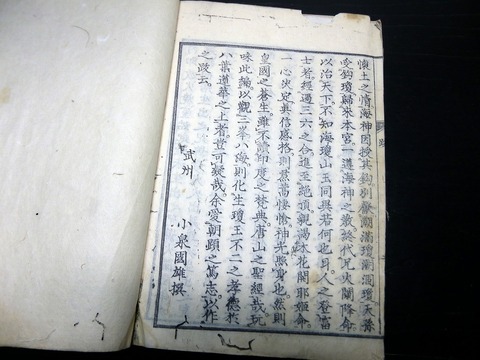 懐土之情海神因授其鈎別獻潮満瓊潮涸瓊天孫
受鈎瓊歸来本宮一遵海神之教終伐兄火闌降命
以治天下不知海瓊山玉同與若何也且人之登富
士若經過三六之合進至絶頂親謁木花開耶姫命
一心决定與信感格則焄蒿悽愴神光照實也然則
皇國之蒼生雖不需印度之梵典唐山之聖經哉玩
味此編以觀三峯八海則化生瓊玉不二之孝德於
八葉蓮華之上者豈可疑哉余愛朝顕之篤志以作
之跋云
武州　小泉國雄撰